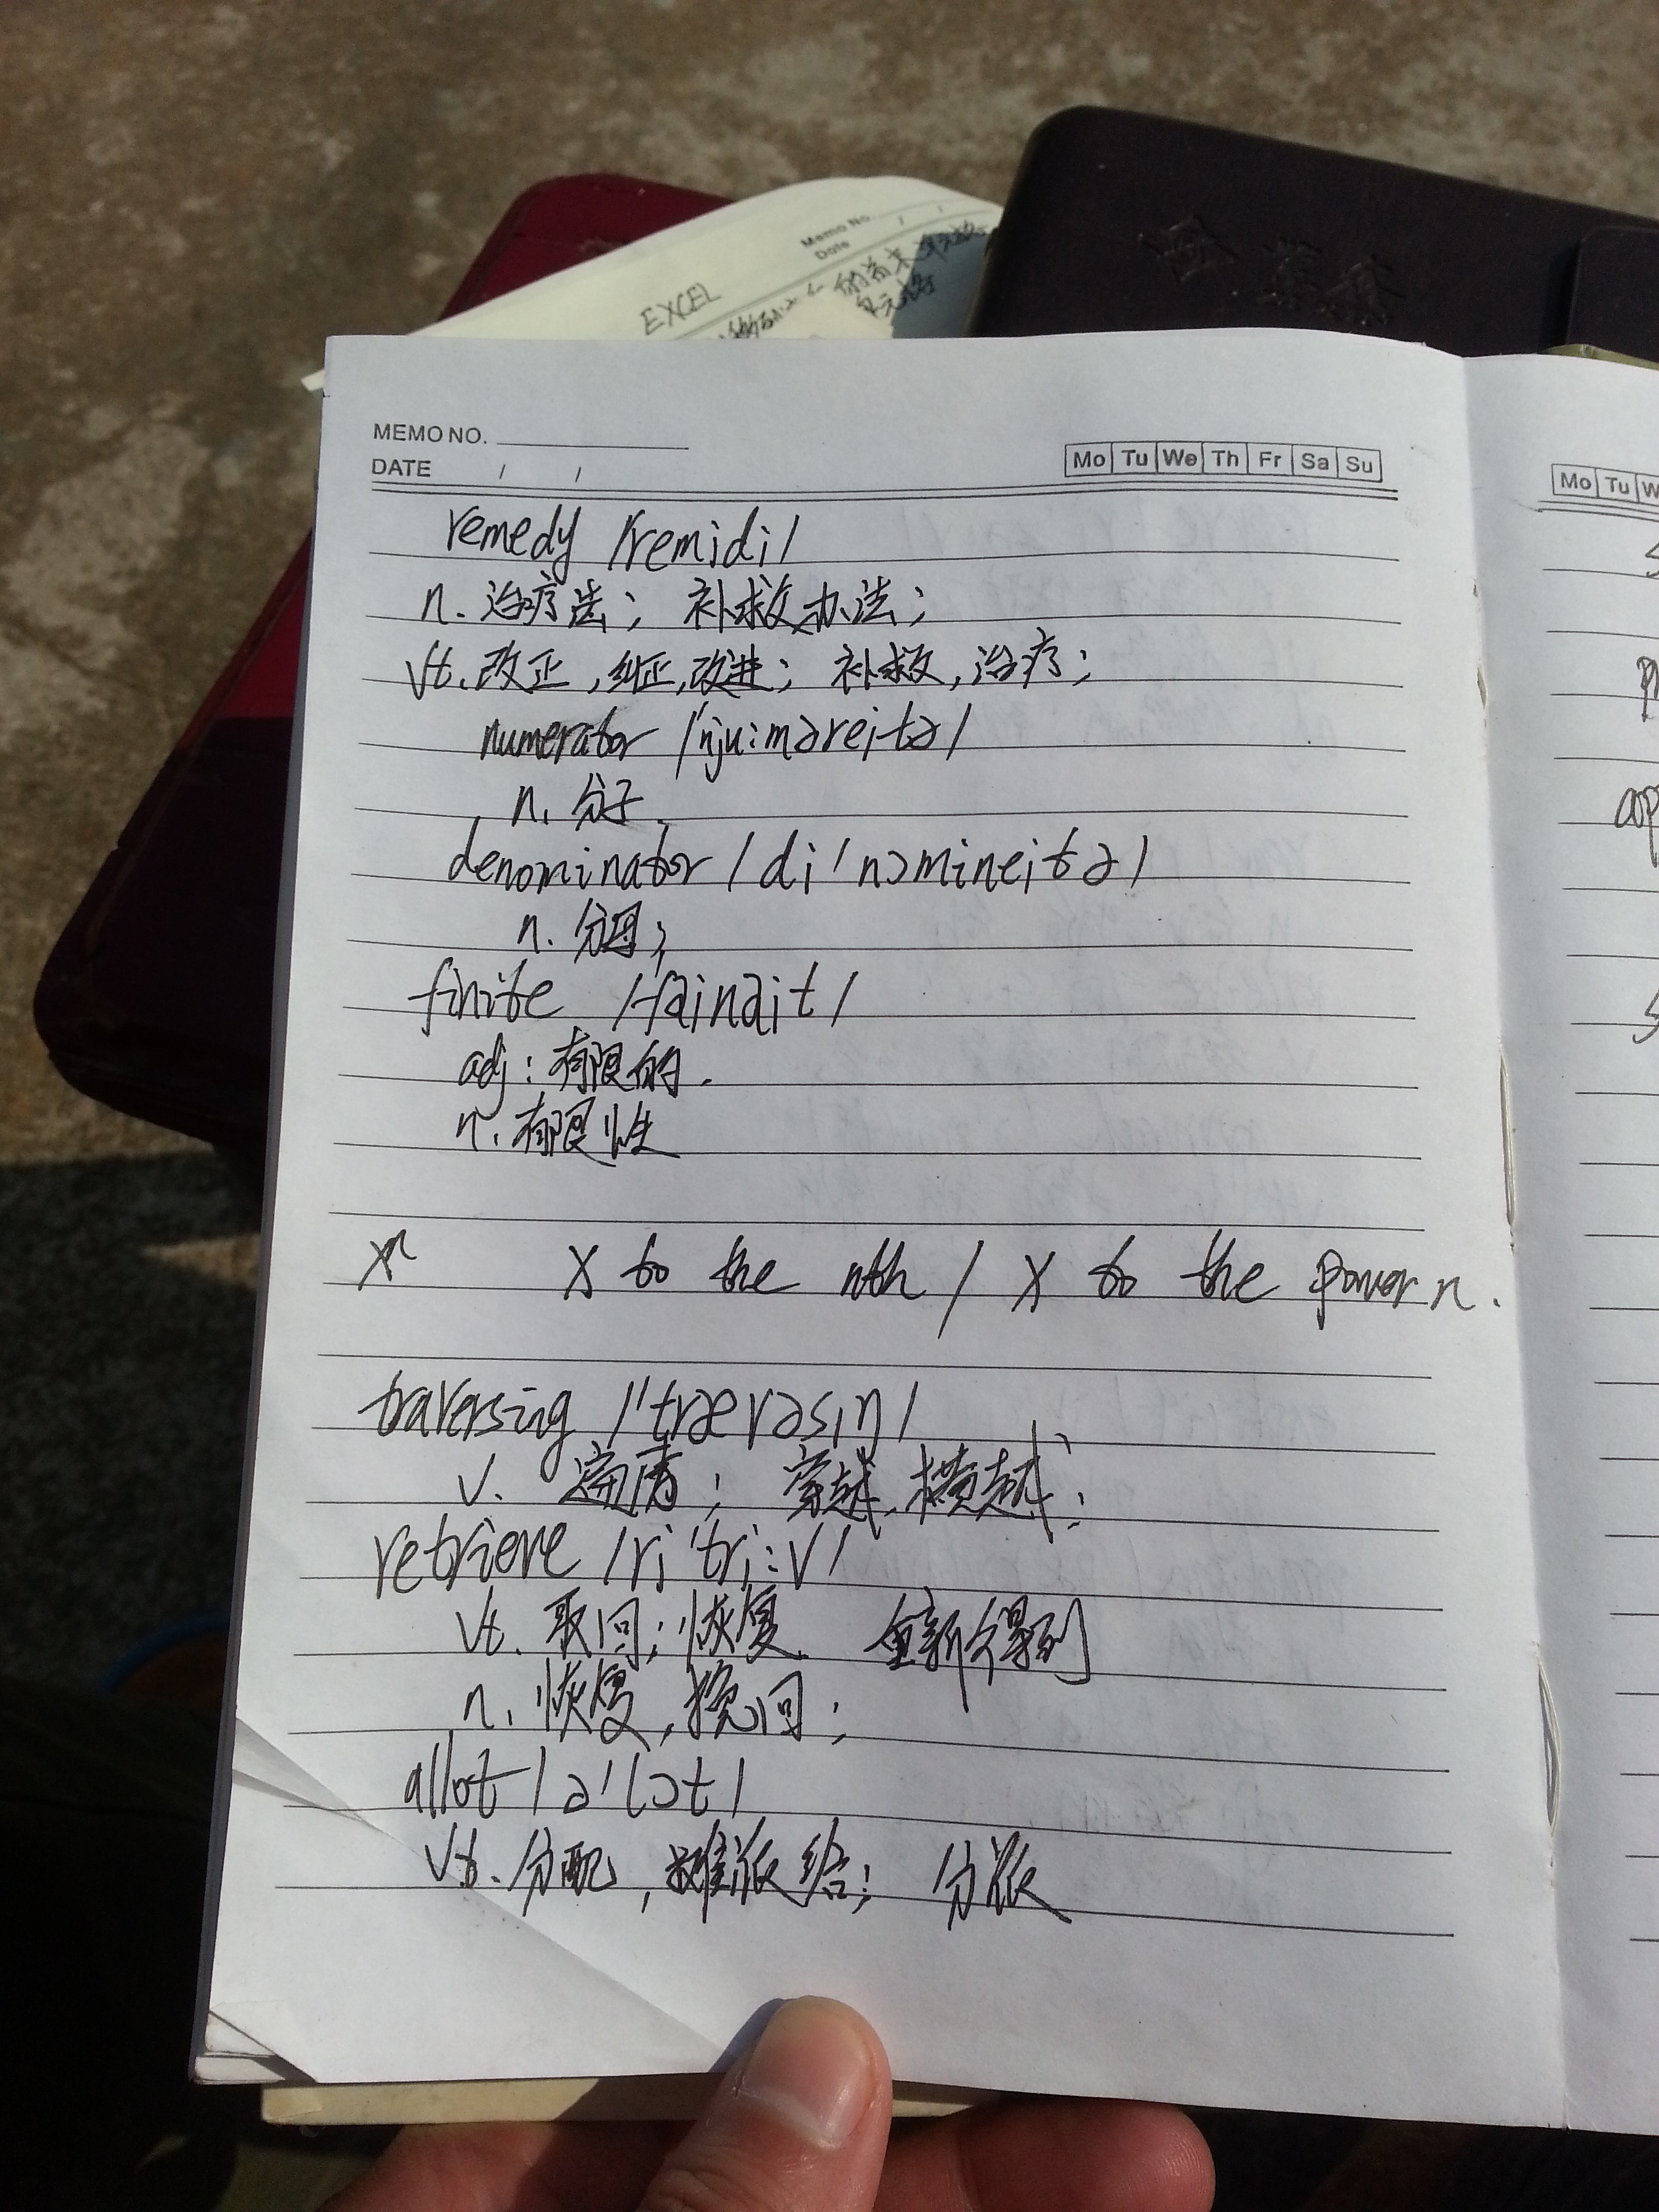 EXCEL
Memo No.
Date / /
MEMO NO.
DATE / /
Mo Tu We Th Fr Sa Su
Mo Tu W
remedy /'remidi/
n. 治疗法; 补救办法;
vt. 改正, 纠正, 改进; 补救, 治疗;
numerator /'nju:məreitə/
n. 分子.
denominator /di'nɔmineitə/
n. 分母;
finite /'fainait/
adj: 有限的.
n. 有限性
xⁿ X to the nth / X to the power n.
traversing /'trævəsiŋ/
v. 遍历; 穿越, 横越;
retrieve /ri'tri:v/
vt. 取回; 恢复. 重新得到
n. 恢复, 挽回;
allot /ə'lɔt/
vt. 分配, 摊派给; 分派